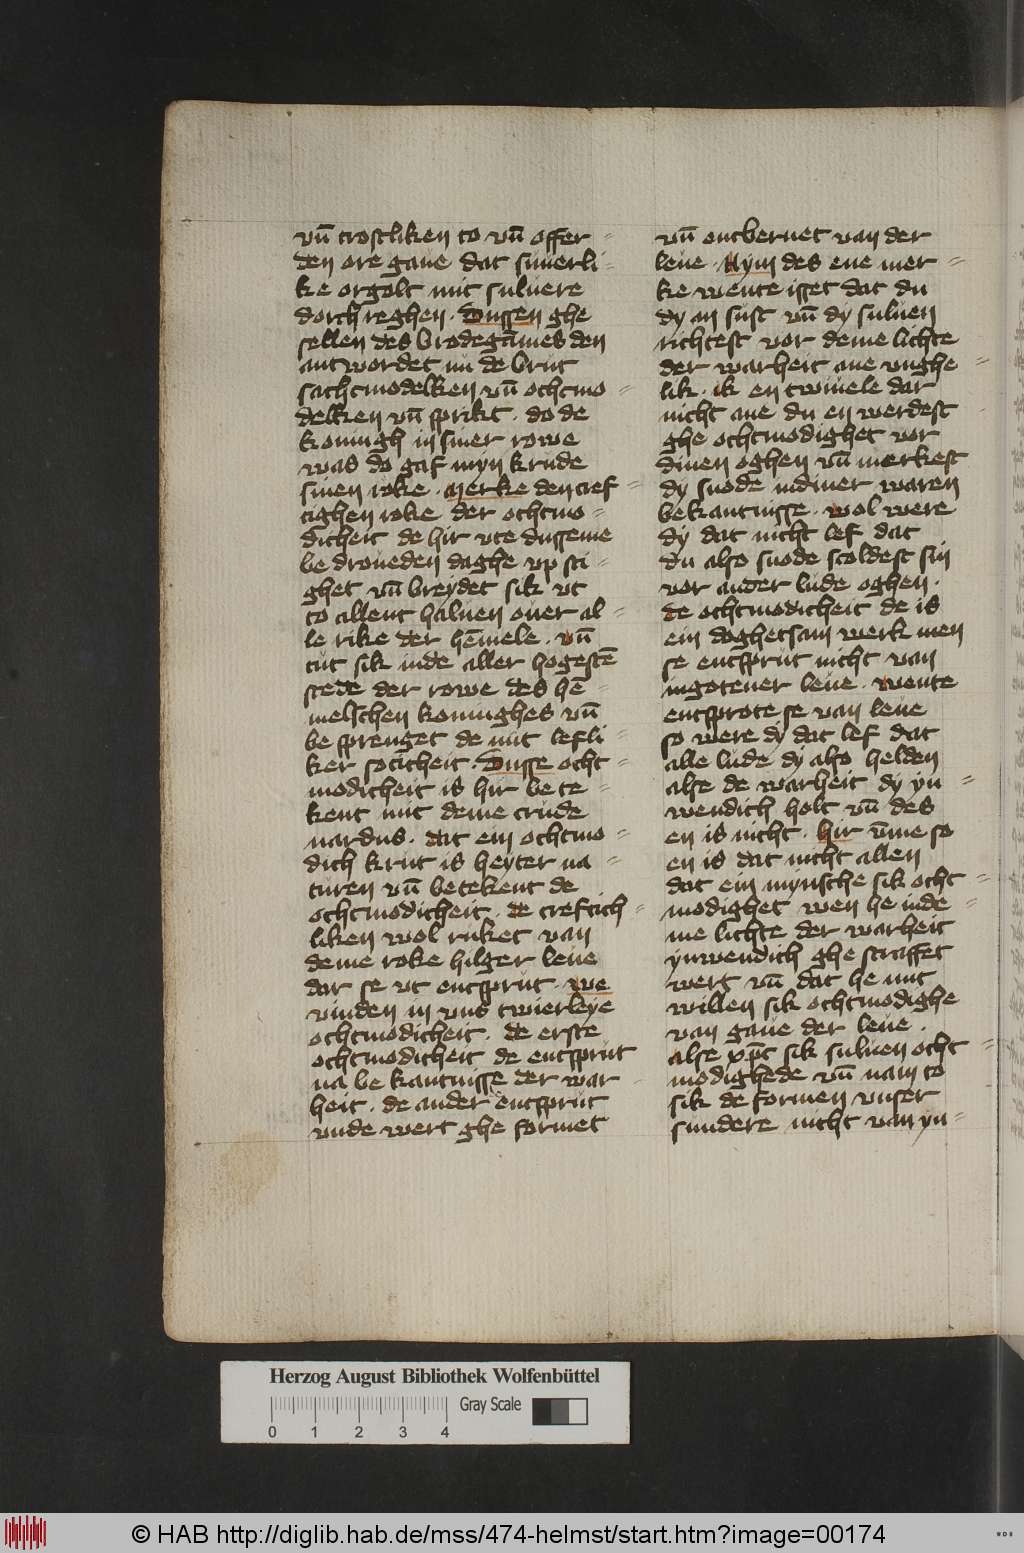 vn̄ trostliken to vn̄ offer-
den ore gaue dat suuerli-
ke orgolt mit suluere
dorch reghen. Dussen ghe
sellen des brodegāmes den
antwordet nu de brut
sachtmodelken vn̄ ochtmo-
delken vn̄ sprikt. do de
koningh in siner rowe
was do gaf myn krude
sinen roke. Merke den cref-
tighen roke der ochtmo-
dicheit de hir vte dusseme
bedroueden daghe vp sti-
ghet vn̄ breydet sik vt
to allent haluen ouer al-
le rike der hēmele. vn̄
tut sik inde aller hogestē
stede der rowe des he-
melschen koninghes vn̄
be sprenget de mit lefli-
ker soticheit. Dusse ocht-
modicheit is hir bete-
kent mit deme crude
nardus. dat ein ochtmo-
dich krut is heyter na-
turen vn̄ betekent de
ochtmodicheit. de creftich-
liken wol ruket van
deme roke hilger leue
dar se vt entsprut. we
vinden in vns twierleye
ochtmodicheit. de erste
ochtmodicheit de entsprut
na be kantnisse der war-
heit. de ander entsprut
vnde wert ghe formet
vn̄ entbernet van der
leue. Nym des ene mer-
ke wente isset dat du
dy an sust vn̄ dy suluen
richtest vor deme lichte
der warheit ane vnghe-
lik. ik en twiuele dar
nicht ane du en werdest
ghe ochtmodighet vor
dinen oghen vn̄ merkest
dy snode indiner waren
bekantnisse. wol were
dy dat nicht lef dat
du also snode scoldest sin
vor ander lude oghen.
de ochtmodicheit de is
ein doghetsam werk men
se entsprut nicht van
ingotener leue. wente
entsprote se van leue
so were dy dat lef dat
alle lude dy also helden
alse de warheit dy yn-
wendich holt vn̄ des
en is nicht. hir v̄me so
en is dat nicht allen
dat ein mynsche sik ocht-
modighet wen he inde-
me lichte der warheit
ynwendich ghe straffet
wert vn̄ dat he mit
willen sik ochtmodighe
van gaue der leue.
alse xp̄c sik suluen ocht-
modighede vn̄ nam to
sik de formen vnser
sundere nicht van yn-
Herzog August Bibliothek Wolfenbüttel
Gray Scale
0 1 2 3 4
© HAB http://diglib.hab.de/mss/474-helmst/start.htm?image=00174
WDB